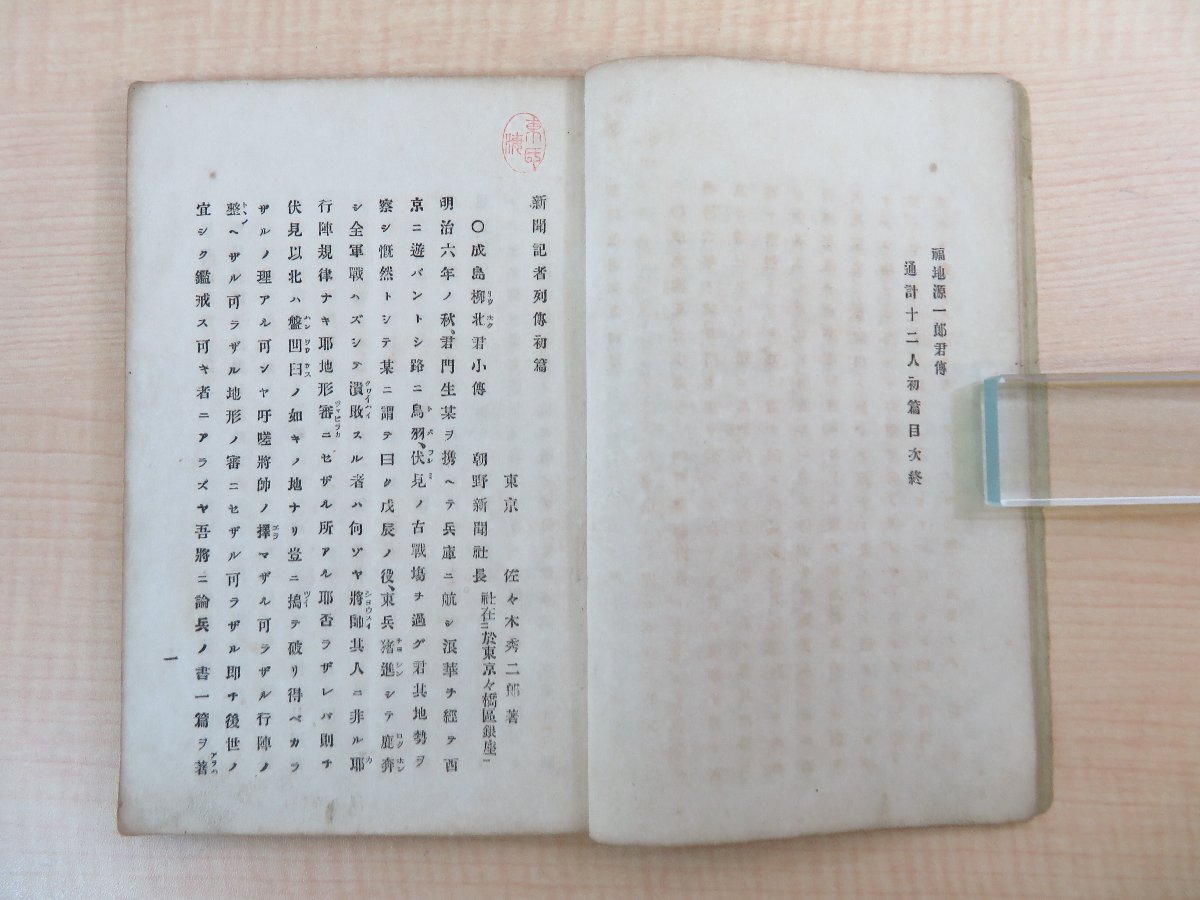 福地源一郎君傳
通計十二人初篇目次終
新聞記者列傳初篇
東京 佐々木秀二郎著
〇成島柳北君小傳 朝野新聞社長 社在二於東京々橋區銀座一
明治六年ノ秋、君門生某ヲ携ヘテ兵庫ニ航シ浪華ヲ經テ西
京ニ遊バントシ路ニ鳥羽、伏見ノ古戰塲ヲ過グ君其地勢ヲ
察シ慨然トシテ某ニ謂テ曰ク戊辰ノ役、東兵猪進シテ鹿奔
シ全軍戰ハズシテ潰敗スル者ハ何ゾヤ將帥其人ニ非ル耶
行陣規律ナキ耶地形審ニセザル所アル耶否ラザレバ則チ
伏見以北ハ盤凹臼ノ如キノ地ナリ豈ニ搗テ破リ得ベカラ
ザルノ理アル可ンヤ吁嗟將帥ノ擇マザル可ラザル行陣ノ
整ヘザル可ラザル地形ノ審ニセザル可ラザル即チ後世ノ
宜シク鑑戒ス可キ者ニアラズヤ吾將ニ論兵ノ書一篇ヲ著
一